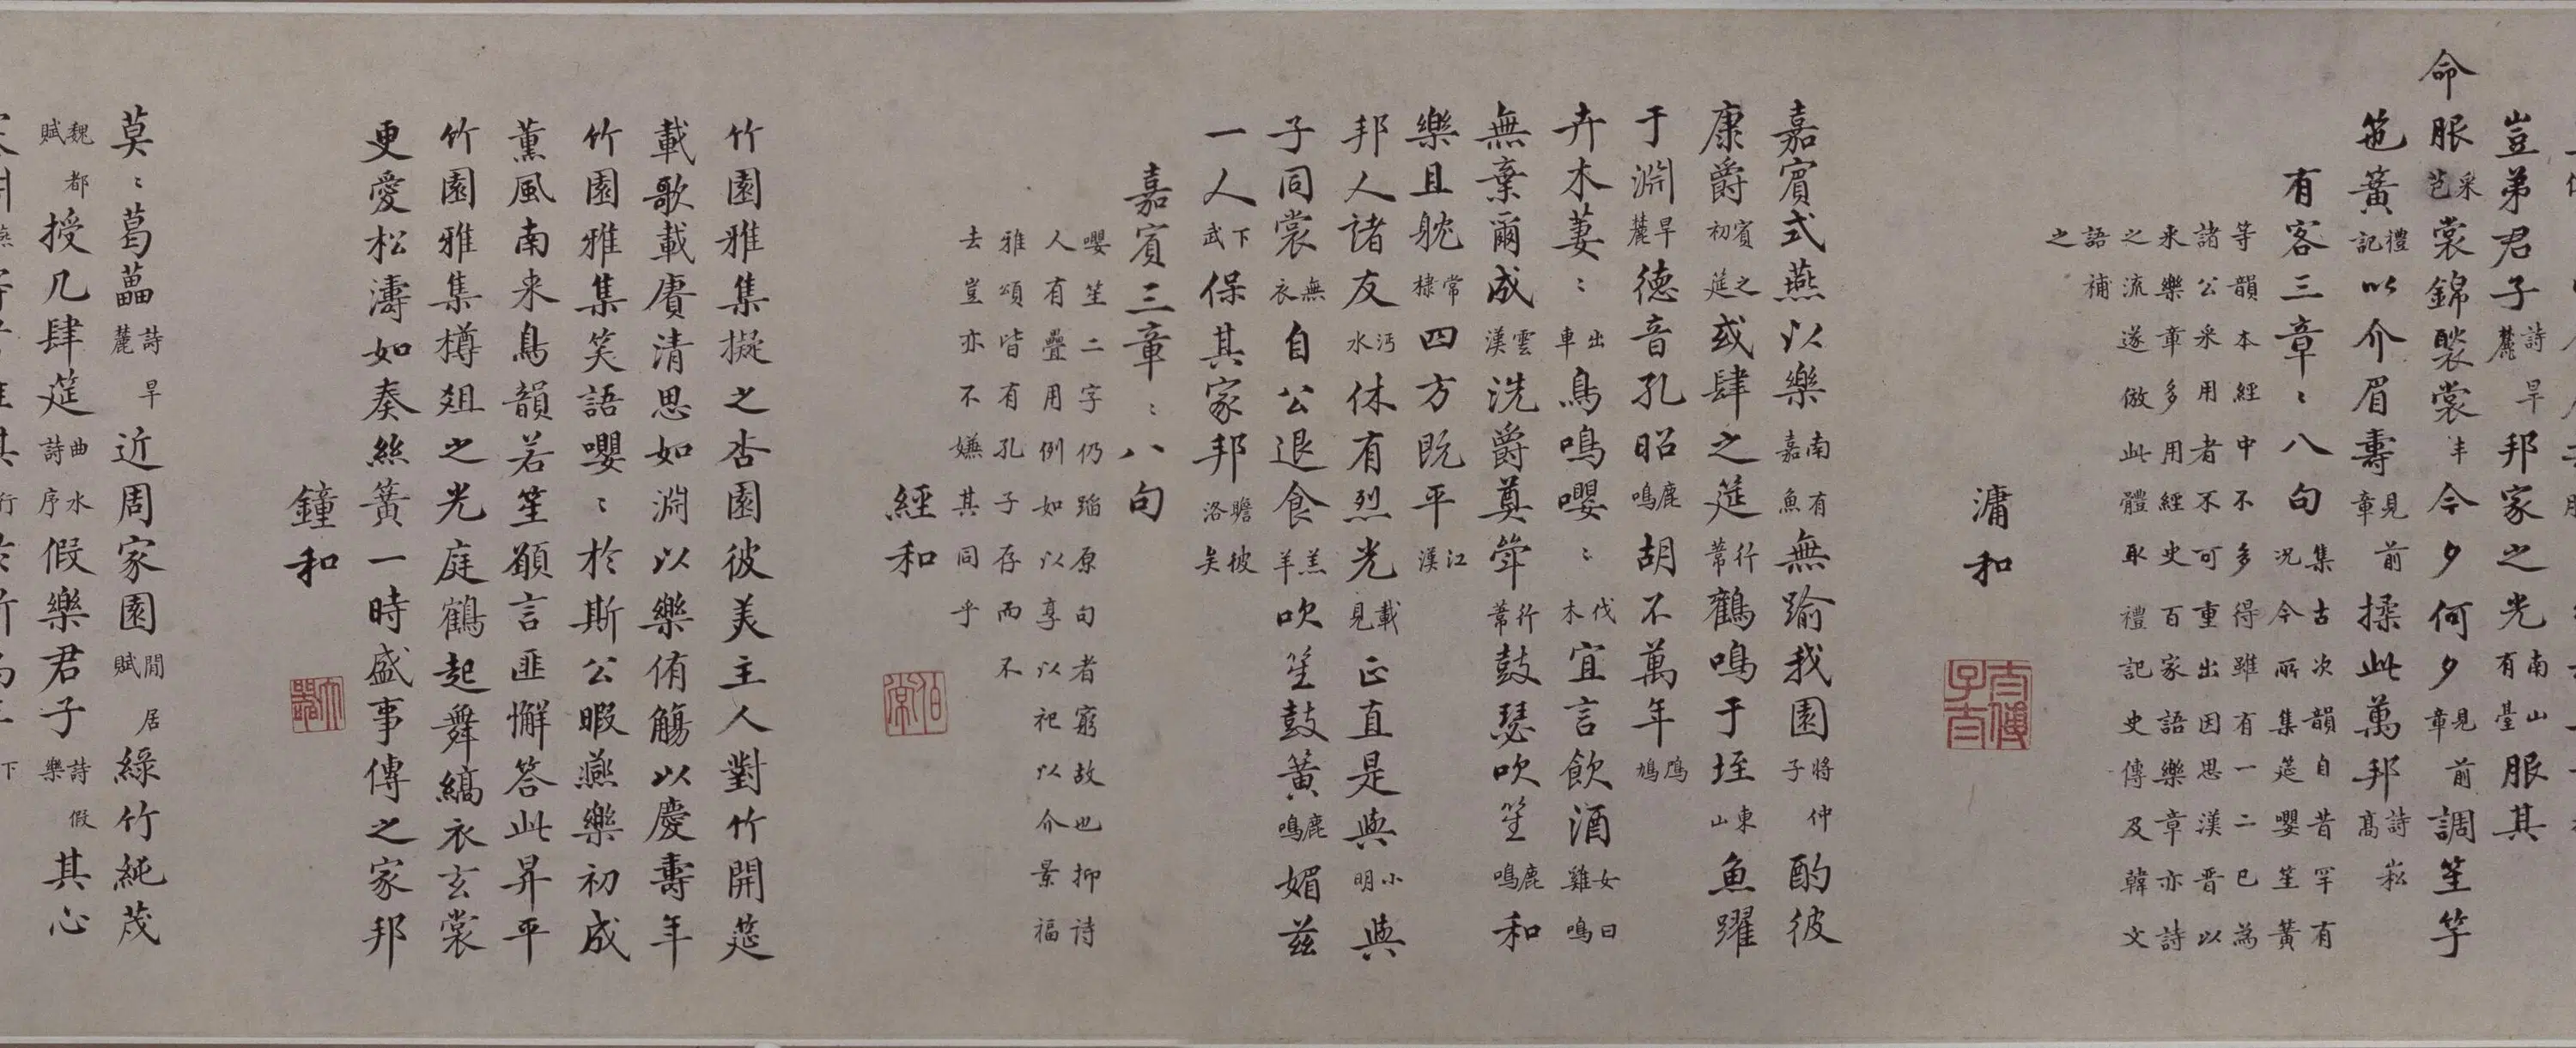 豈弟君子詩旱麓邦家之光南山有臺服其
命服采芑裳錦褧裳丰今夕何夕見前章調笙竽
笆簧禮記以介眉壽見前章揉此萬邦詩崧高
有客三章章八句集古次韻自昔罕有
況今所集筵嚶笙簧
等韻本經中不多得雖有一二已為
諸公采用者不可重出因思漢晋以
来樂章多用經史百家語樂章亦詩
之流遂倣此體取禮記史傳及韓文
語補
之
濂和
嘉賓式燕以樂南有嘉魚無踰我園將仲子酌彼
康爵賓之初筵或肆之筵行葦鶴鳴于垤東山魚躍
于淵旱麓德音孔昭鹿鳴胡不萬年鳲鳩
卉木萋〻出車鳥鳴嚶〻伐木宜言飲酒女曰雞鳴
無棄爾成雲漢洗爵奠斝行葦鼓瑟吹笙鹿鳴和
樂且耽常棣四方既平江漢
邦人諸友沔水休有烈光載見正直是與小明與
子同裳無衣自公退食羔羊吹笙鼓簧鹿鳴媚兹
一人下武保其家邦瞻彼洛矣
嘉賓三章〻八句
嚶笙二字仍蹈原句者窮故也抑詩
人有疊用例如以享以祀以介景福
雅頌皆有孔子存而不
去豈亦不嫌其同乎
經和
伯常
竹園雅集擬之杏園彼美主人對竹開筵
載歌載賡清思如淵以樂侑觴以慶壽年
竹園雅集笑語嚶〻於斯公暇燕樂初成
薰風南来鳥韻若笙願言匪懈答此昇平
竹園雅集樽俎之光庭鶴起舞縞衣玄裳
更愛松濤如奏絲簧一時盛事傳之家邦
鐘和
莫〻葛藟詩旱麓近周家園閒居賦綠竹純茂
魏都賦授几肆筵曲水詩序假樂君子詩假樂其心